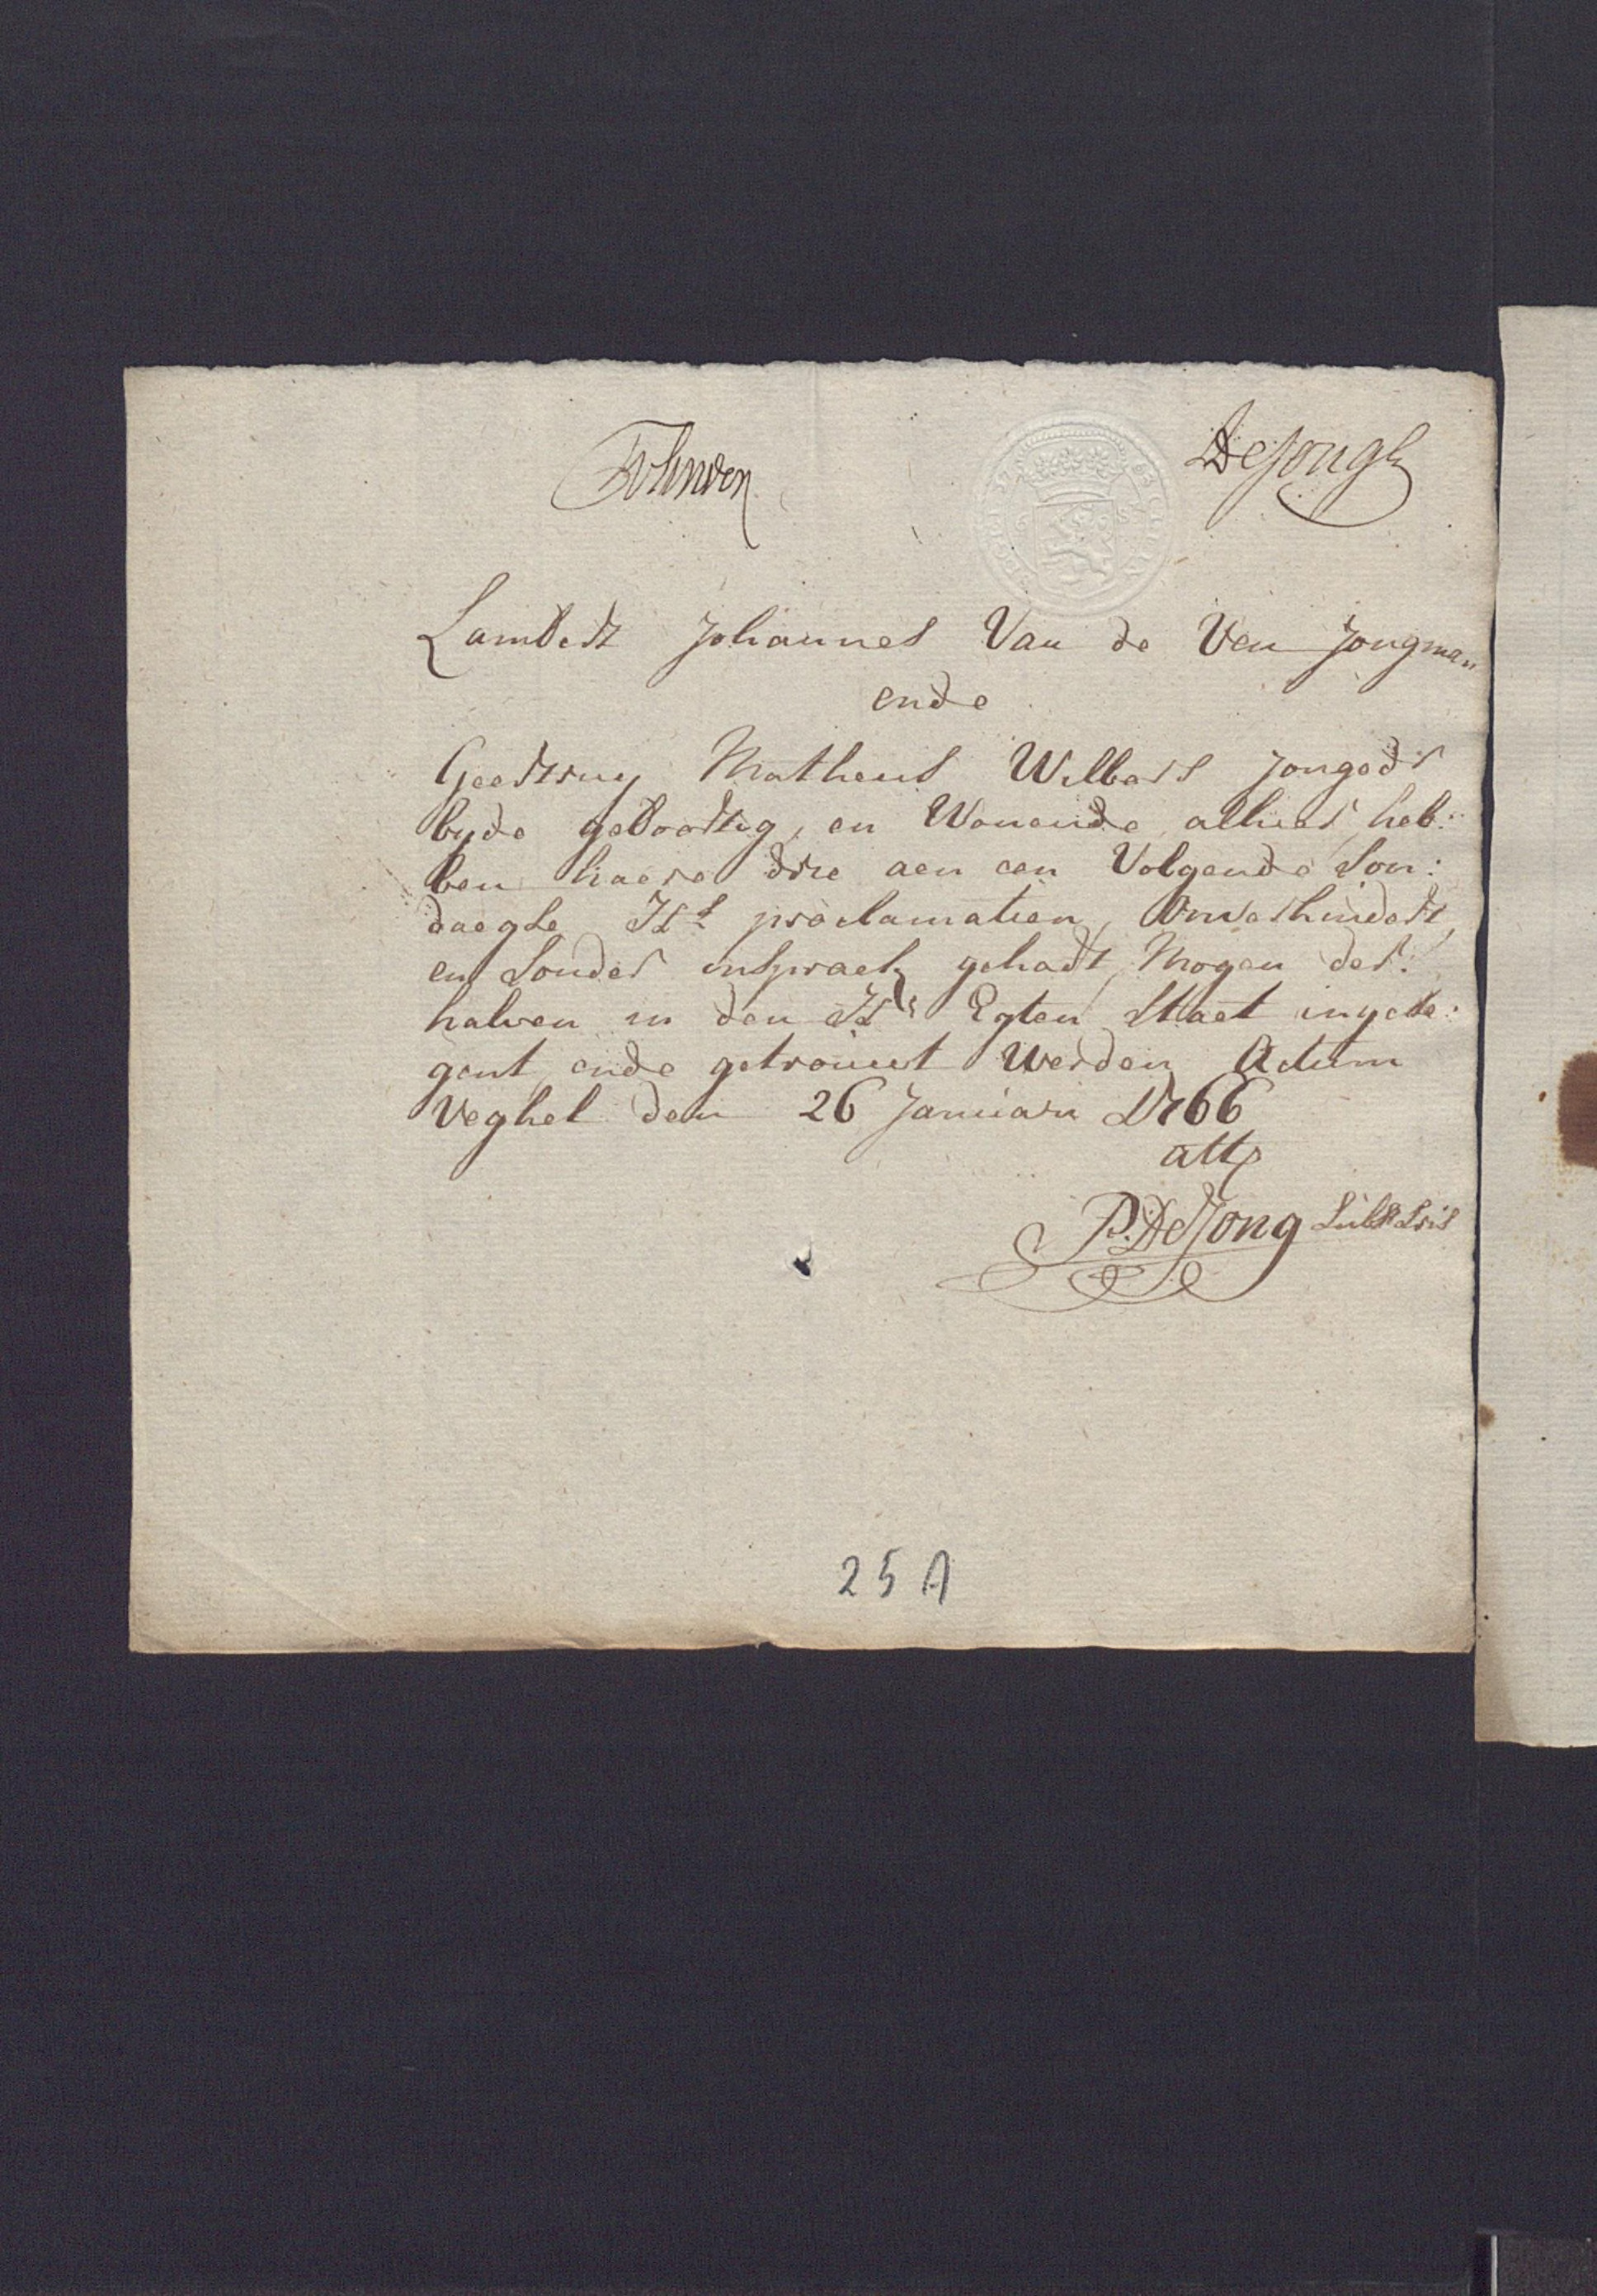 DeJongh
Lambert Johannes Van de Ven Jongman
ende
Geertruy Matheus Wilbers jongedr
byde geboortig, en Wonende alhier, heb:
ben haere drie aen een Volgende Son:
daegse Hs proclamatien, Onverhindert,
en sonder inspraek gehadt, Mogen der:
halven in den Hs Egten Staet ingese:
gent, ende getrouwt Werden Actum
Veghel den 26 Januari 1766
atts
P. DeJong Subst Sris
25 A